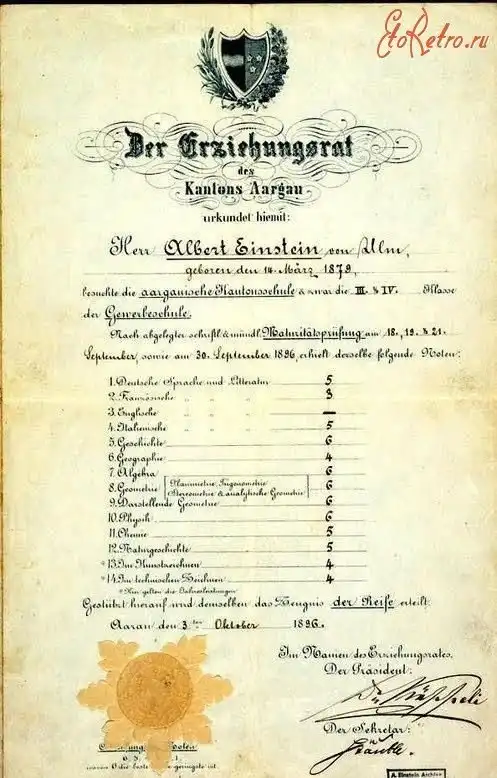 EtoRetro.ru
Der Erziehungsrat
des
Kantons Aargau
urkundet hiemit:
Herr Albert Einstein von Ulm,
geboren den 14. März 1879,
besuchte die aargauische Kantonsschule & zwar die III. & IV. Klasse
der Gewerbeschule.
Nach abgelegter schriftl. & mündl. Maturitätsprüfung am 18., 19. & 21.
September, sowie am 30. September 1896, erhielt derselbe folgende Noten:
1. Deutsche Sprache und Litteratur 5
2. Französische " " " 3
3. Englische " " " —
4. Italienische " " " 5
5. Geschichte 6
6. Geographie 4
7. Algebra 6
8. Geometrie Planimetrie, Trigonometrie 6
Stereometrie & analytische Geometrie
9. Darstellende Geometrie 6
10. Physik 6
11. Chemie 5
12. Naturgeschichte 5
*13. Im Kunstzeichnen 4
*14. Im technischen Zeichnen 4
* Hier gelten die Jahresleistungen.
Gestützt hierauf wird demselben das Zeugnis der Reife erteilt.
Aarau den 3ten Oktober 1896.
Im Namen des Erziehungsrates,
Der Präsident:
Der Sekretär:
Noten
6 die beste geringste ist.
A. Einstein Archive